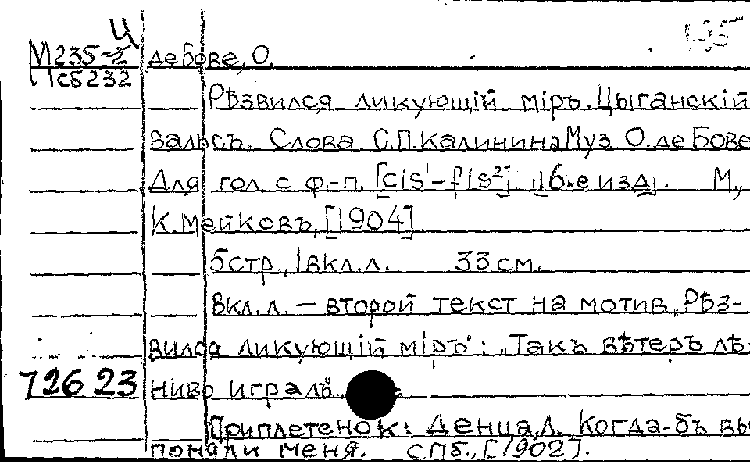 Ц 135
М235-2 де Бове, О.
Мсб232
Рѣзвился ликующій міръ. Цыганскій
вальсъ. Слова С.П. Калинина Муз О. де Бове
Для гол с ф-п. [cis¹-fis²] 16-е изд. М,
К. Мейковъ, [1904]
5 стр., 1 вкл. л. 33 см.
Вкл. л. – второй текст на мотив „Рѣз-
вился ликующій міръ": „Такъ вѣтеръ лѣ-
72623 ниво игралъ
Приплетенок: Денца, Л. Когда-б ъ вы
поняли меня. СПб., [1902].